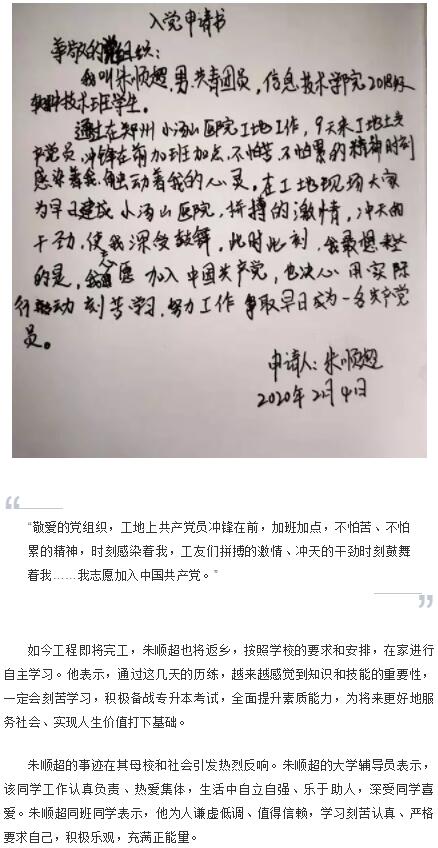 入党申请书
尊敬的党组织：
我叫朱顺超，男，共青团员，信息技术学院2018级
软件技术班学生。
通过在郑州小汤山医院工地工作，9天来工地上共
产党员，冲锋在前加班加点，不怕苦、不怕累的精神时刻
感染着我，触动着我的心灵。在工地现场大家
为早日建成小汤山医院，拼搏的激情，冲天的
干劲，使我深受鼓舞，此时此刻，我最想表达
的是，我志愿加入中国共产党，也决心用实际
行动刻苦学习，努力工作争取早日成为一名共产党
员。
申请人：朱顺超
2020年2月4日
“敬爱的党组织，工地上共产党员冲锋在前，加班加点，不怕苦、不怕
累的精神，时刻感染着我，工友们拼搏的激情、冲天的干劲时刻鼓舞
着我……我志愿加入中国共产党。”
如今工程即将完工，朱顺超也将返乡，按照学校的要求和安排，在家进行
自主学习。他表示，通过这几天的历练，越来越感觉到知识和技能的重要性，
一定会刻苦学习，积极备战专升本考试，全面提升素质能力，为将来更好地服
务社会、实现人生价值打下基础。
朱顺超的事迹在其母校和社会引发热烈反响。朱顺超的大学辅导员表示，
该同学工作认真负责、热爱集体，生活中自立自强、乐于助人，深受同学喜
爱。朱顺超同班同学表示，他为人谦虚低调、值得信赖，学习刻苦认真、严格
要求自己，积极乐观，充满正能量。